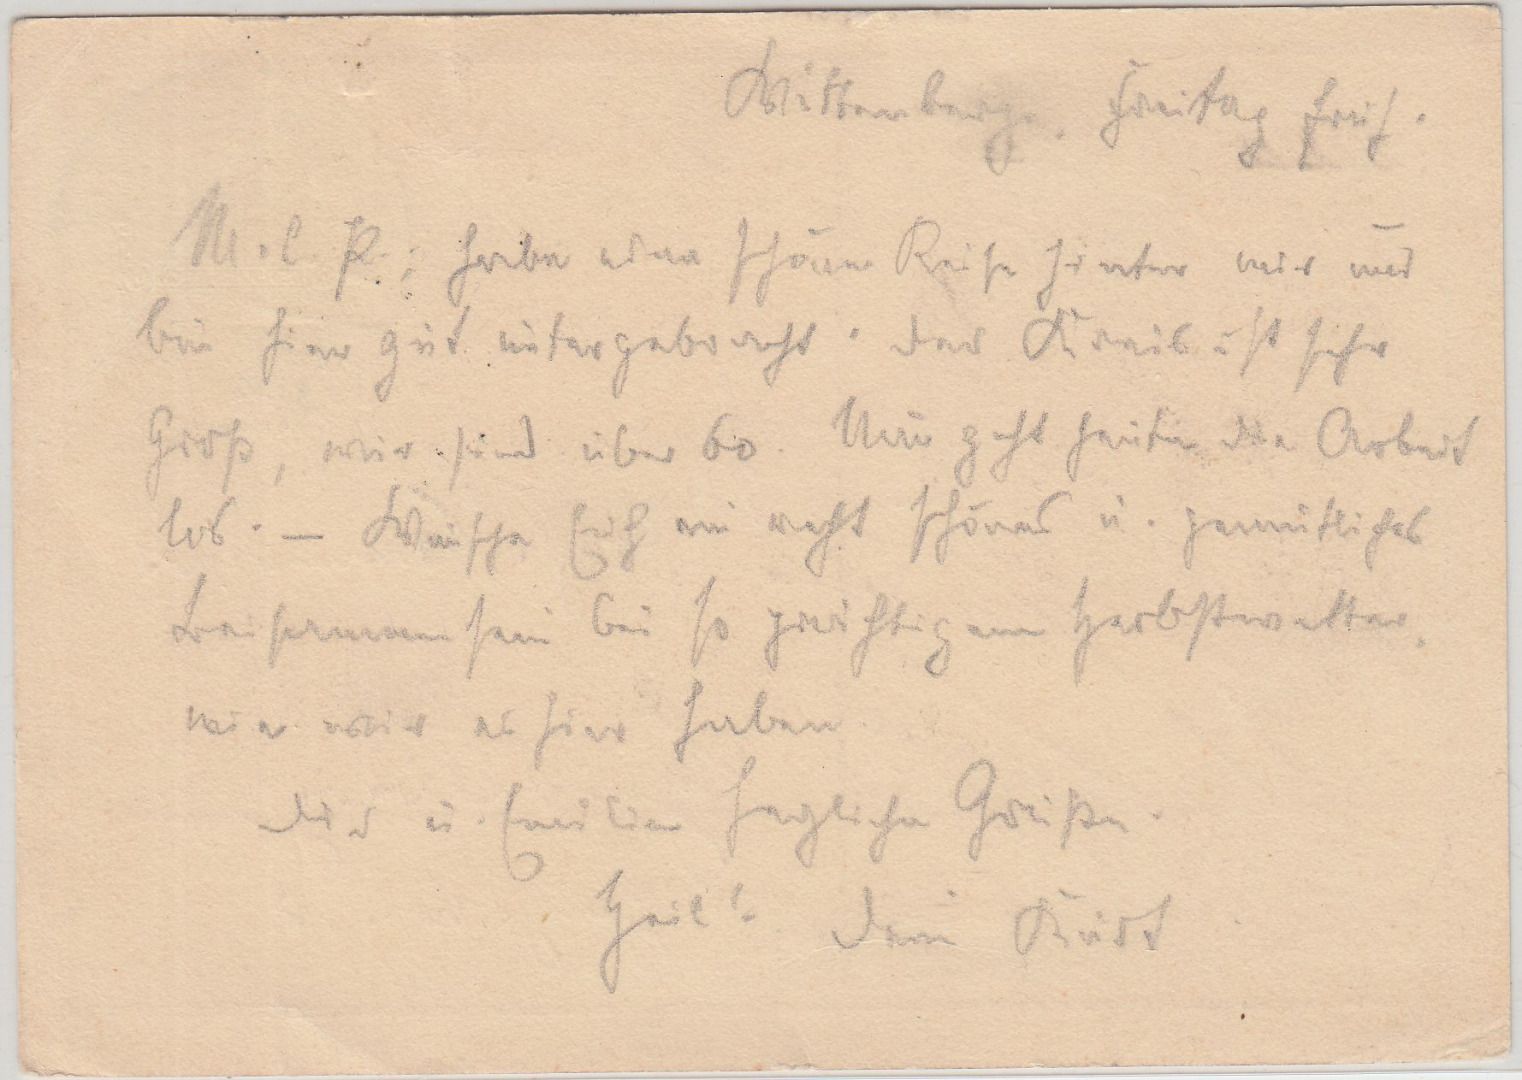 Wittenberge, Freitag früh.
M. l. P.; habe eine schöne Reise hinter mir und
bin hier gut untergebracht. Der Kreis ist sehr
Groß, wir sind über 60. Nun geht heute die Arbeit
los. — Wünsche Euch ein recht schönes u. gemütliches
Beisammensein bei so prächtigem Herbstwetter,
wie wir es hier haben.
Dir u. Emilie herzliche Grüße.
Heil! Dein Kurt